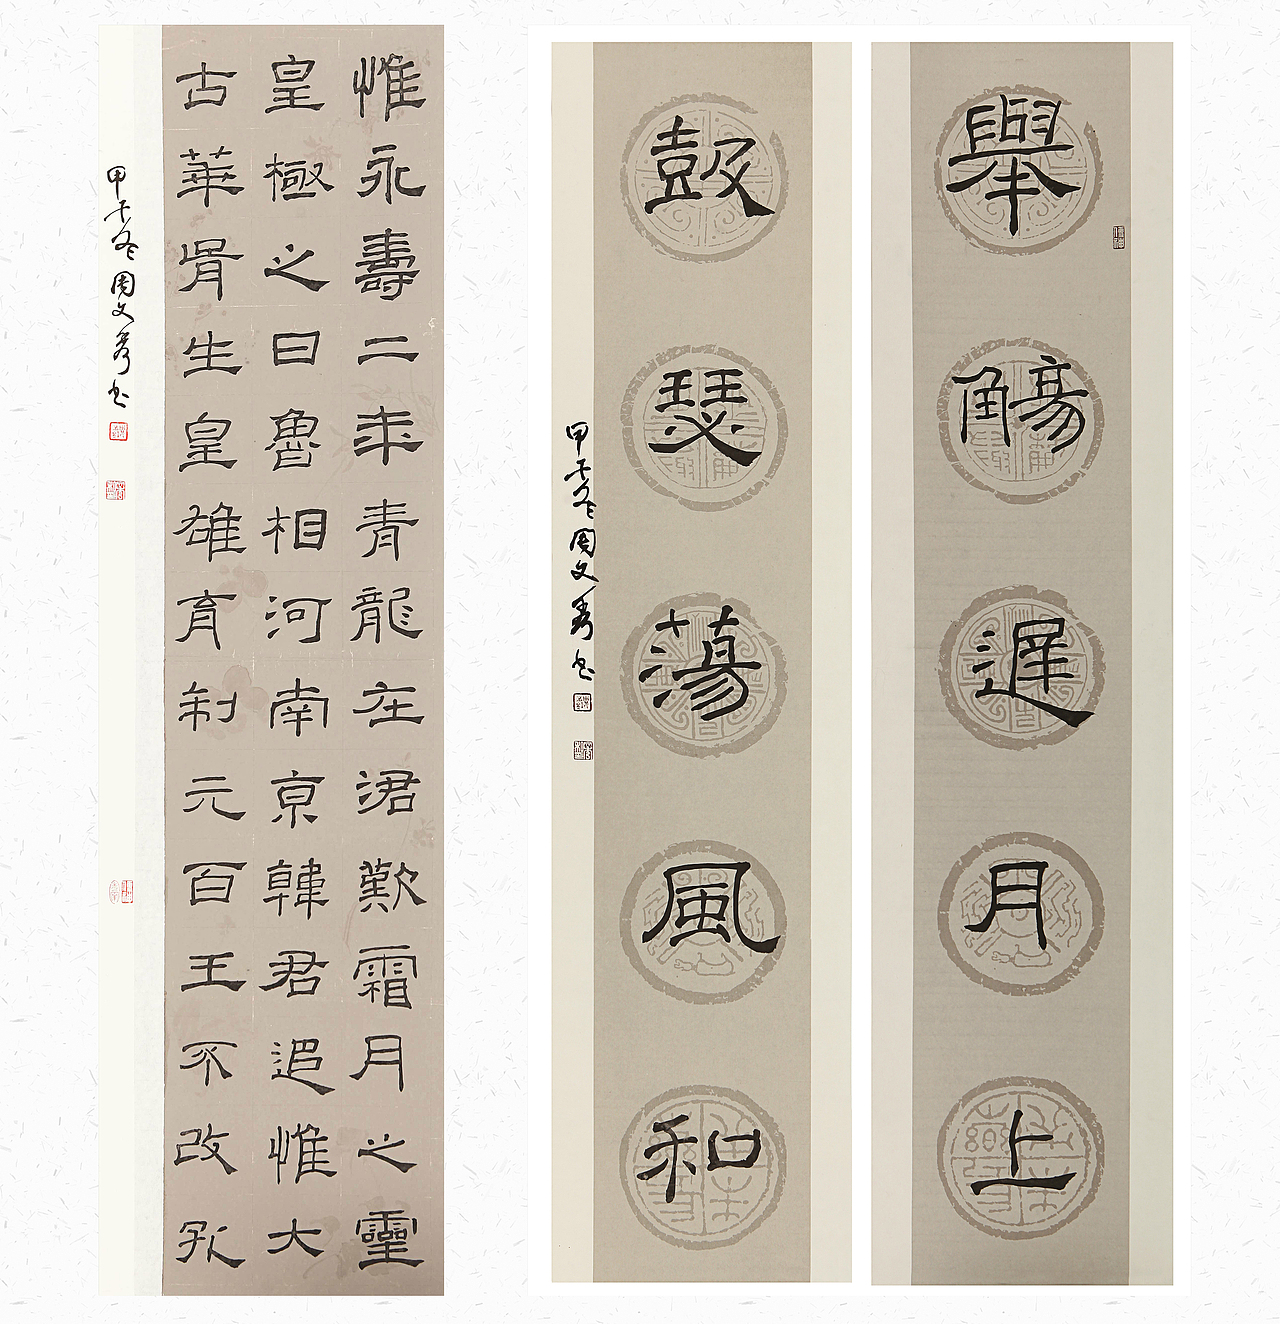 惟永壽二年青龍在涒歎霜月之靈
皇極之日魯相河南京韓君追惟大
古華胥生皇雄育制元百王不改孔
甲午冬周文秀书
舉觴遲月上
鼓瑟蕩風和
甲午冬周文秀书